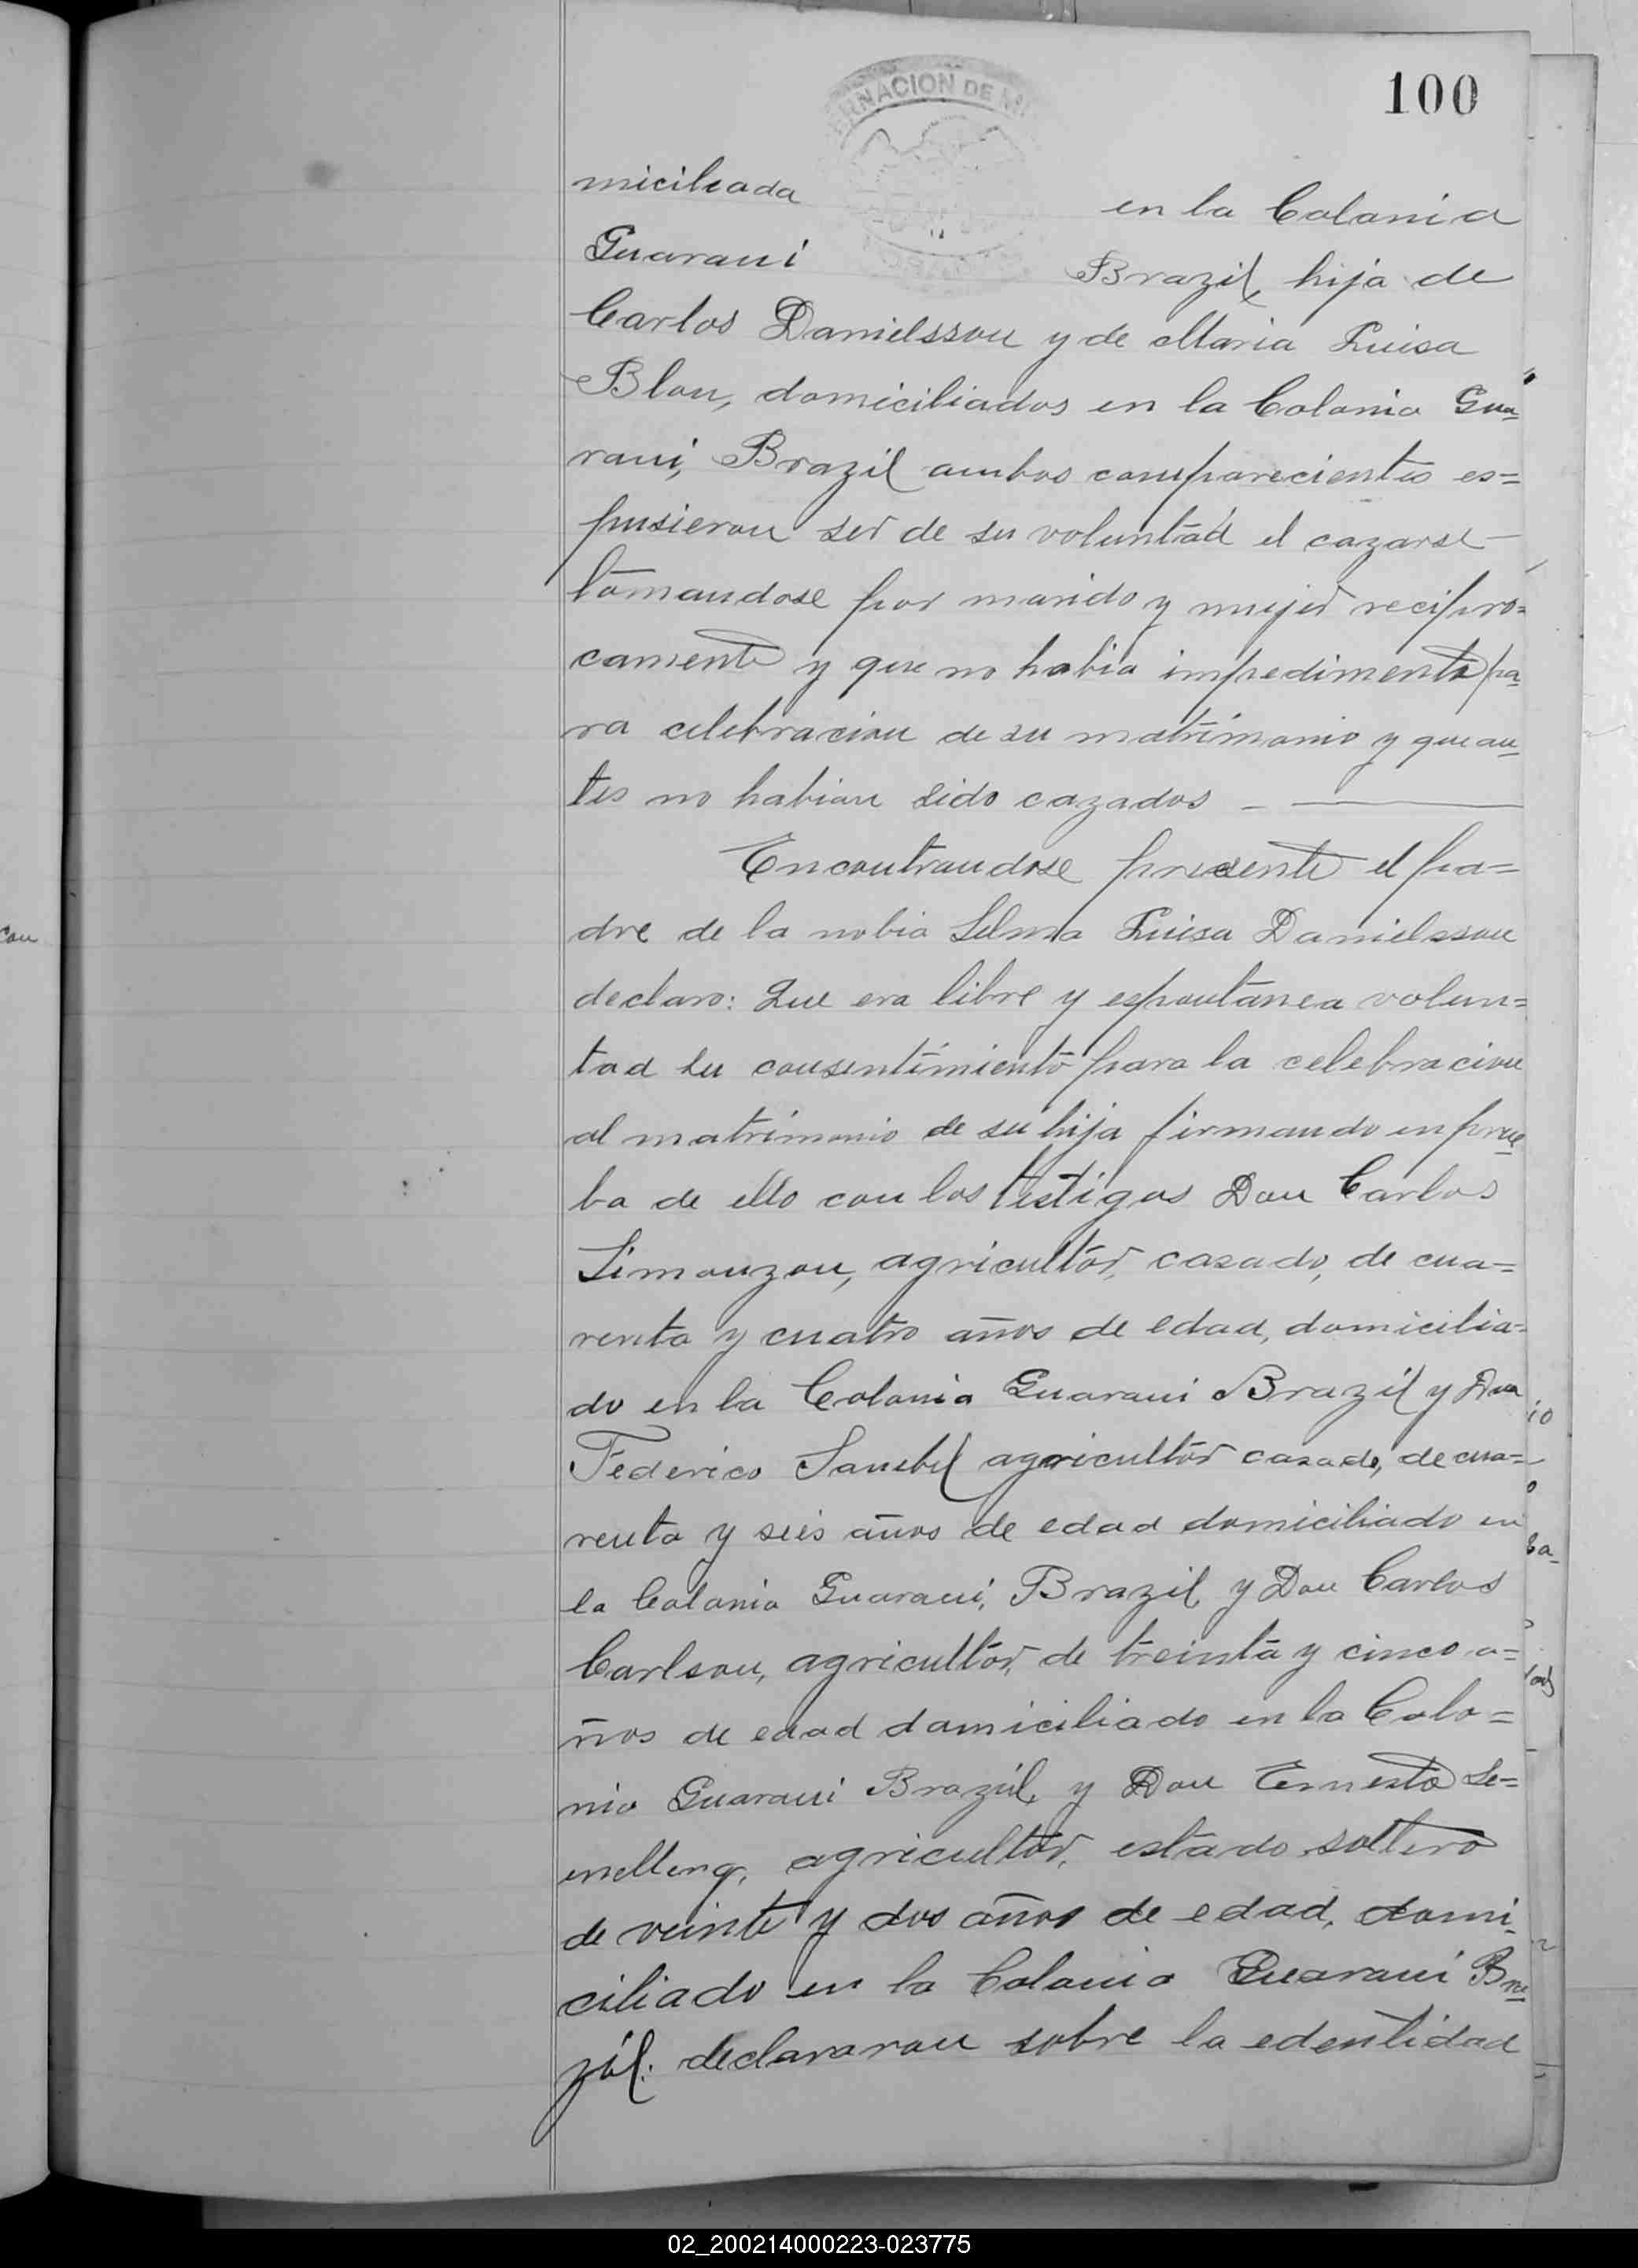 100
RNACION DE MI
miciliada en la Colonia
Guarani Brazil, hija de
Carlos Danielsson y de Maria Luisa
Blon, domiciliados en la Colonia Gua=
rani, Brazil ambos comparecientes es=
pusieron ser de su voluntad el cazarse
tomandose por marido y mujer recipro=
camente y que no habia impedimento pa=
ra celebracion de su matrimonio y que an=
tes no habian sido cazados
Encontrandose presente el pa=
dre de la nobia Selma Luisa Danielsson
declaro: Que era libre y espontanea volun=
tad su consentimiento para la celebracion
al matrimonio de su hija firmando en prue=
ba de ello con los testigos Don Carlos
Simonzon, agricultor, casado, de cua=
renta y cuatro años de edad, domicilia=
do en la Colonia Guarani Brazil y Don
Federico agricultor casado, de cua=
renta y seis años de edad domiciliado en
la Colonia Guarani, Brazil, y Don Carlos
Carlson, agricultor, de treinta y cinco a=
ños de edad domiciliado en la Colo=
nia Guarani Brazil, y Don Ernesto
agricultor, estado soltero
de veinte y dos años de edad, domi=
ciliado en la Colonia Guarani Bra=
zil. declararon sobre la edentidad
02_200214000223-023775